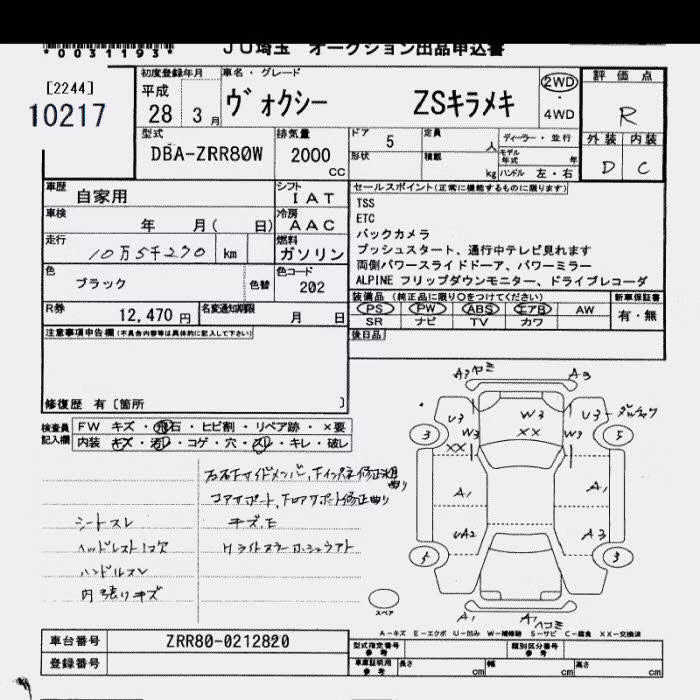 *0031193*
JU埼玉 オークション出品申込書
[2244]
10217
初度登録年月
平成
28 3月
車名・グレード
ヴォクシー ZSキラメキ
2WD
・
4WD
評価点
R
外装 内装
D C
型式
DBA-ZRR80W
排気量
2000
CC
ドア 5
定員 人
ディーラー・並行
形状
積載 kg
モデル年式 年
ハンドル 左・右
車歴
自家用
シフト
IAT
車検
年 月( 日)
冷房
AAC
走行
10万5千270 km
燃料
ガソリン
色
ブラック
色替
色コード
202
R券
12,470円
名変通知期限
月 日
セールスポイント(正常に機能するものに限ります)
TSS
ETC
バックカメラ
プッシュスタート、通行中テレビ見れます
両側パワースライドドーア、パワーミラー
ALPINE フリップダウンモニター、ドライブレコーダ
装備品 (純正品に限り○をつけてください)
PS PW ABS エアB AW
SR ナビ TV カワ
新車保証書
有・無
後日品
注意事項申告欄(不具合内容等は具体的に記入して下さい)
修復歴 有[箇所 ]
検査員
記入欄
FW キズ・飛石・ヒビ割・リペア跡・×要
内装 キズ・汚レ・コゲ・穴・スレ・キレ・破レ
シートスレ
ヘッドレスト1コ欠
ハンドルスレ
内張りキズ
コアサポート、
キズ、E
A3 ヤミ A3
U3 W3 U3
3 W3 XX W3 5
XX
A1 A1
UA2 A3
5 3
スペア
A1 A1 ヘコミ
A-キズ E-エクボ U-凹み W-補修跡 S-サビ C-腐食 XX-交換済
車台番号 ZRR80-0212820
登録番号
型式指定番号
参考
類別区分番号
参考
車庫証明用
参考
長さ cm 幅 cm 高さ cm